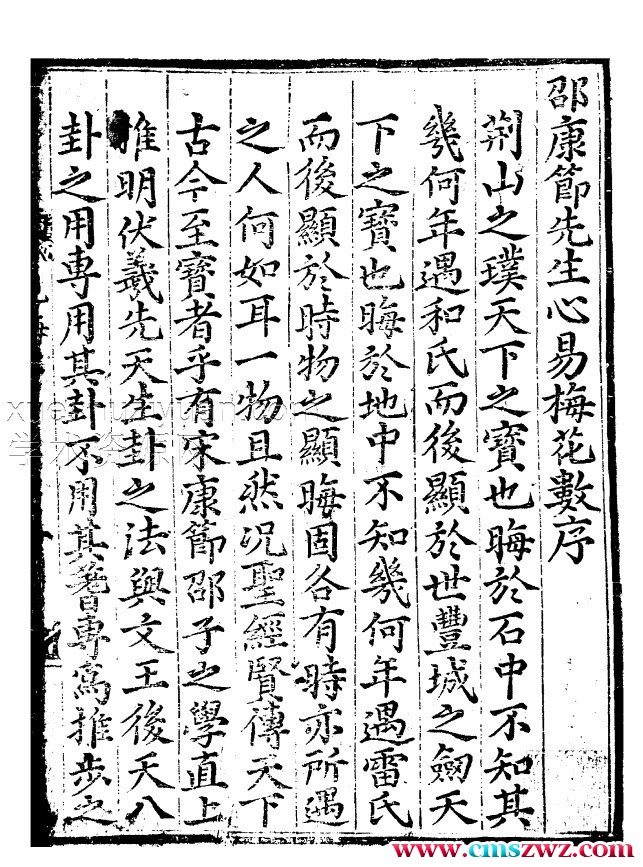 邵康節先生心易梅花數序
荊山之璞天下之寶也晦於石中不知其
幾何年遇和氏而後顯於世豐城之劍天
下之寶也晦於地中不知幾何年遇雷氏
而後顯於時物之顯晦固各有時亦所遇
之人何如耳一物且然况聖經賢傳天下
古今至寶者乎有宋康節邵子之學直上
推明伏羲先天生卦之法與文王後天八
卦之用專用其卦不用其蓍專爲推步之
www.cmszwz.com